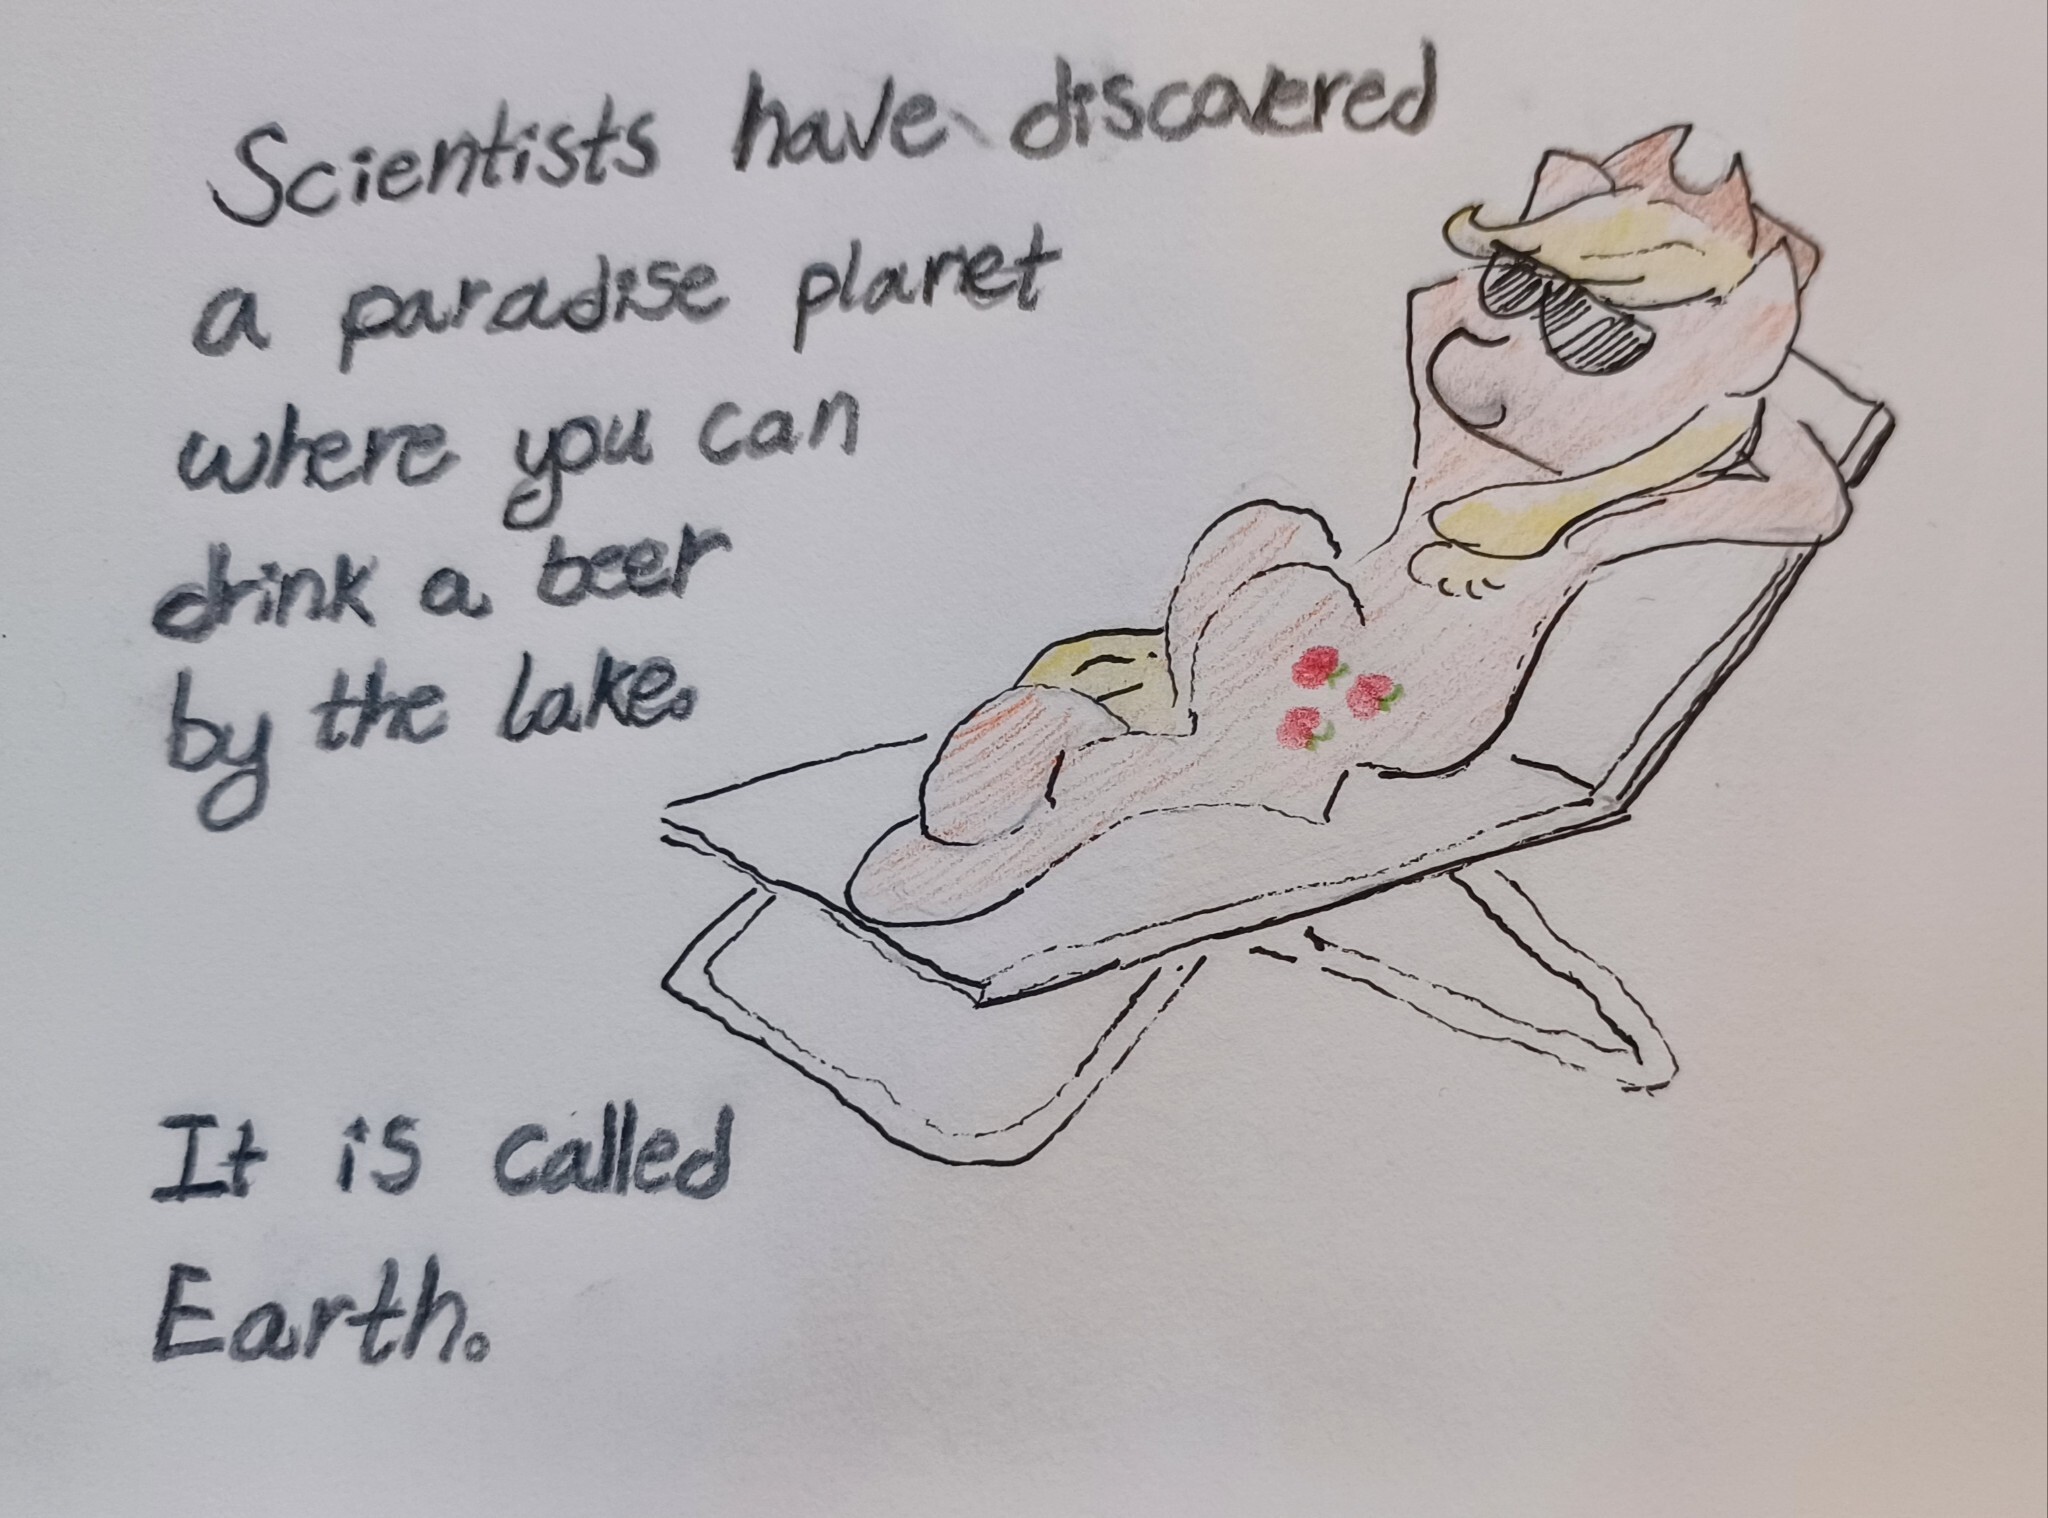 Scientists have discovered
a paradise planet
where you can
drink a beer
by the lake.
It is called
Earth.